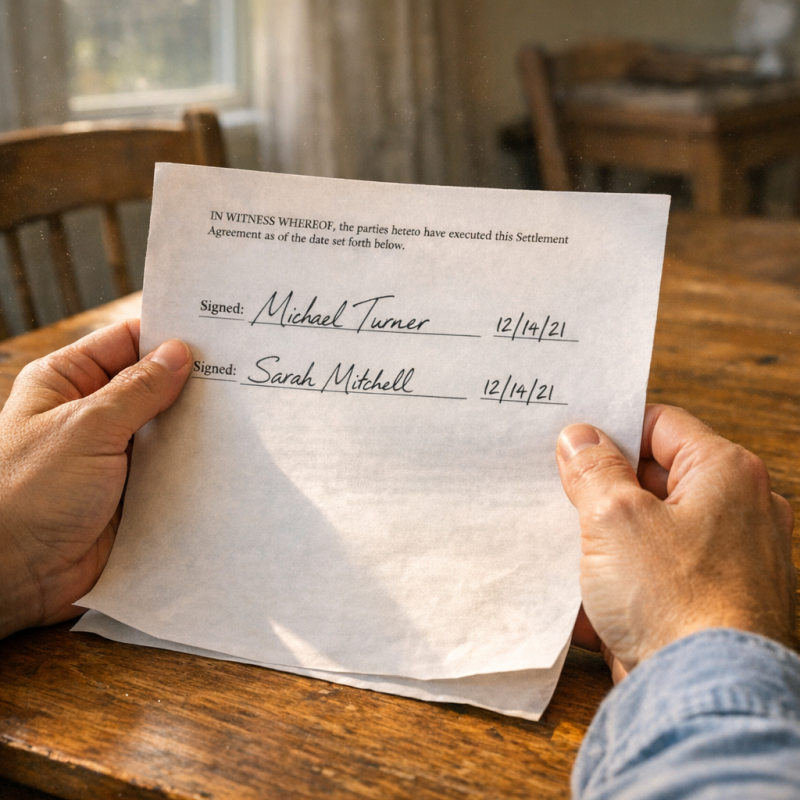 IN WITNESS WHEREOF, the parties heteto have executed this Settlement
Agreement as of the date set forth below.
Signed: Michael Turner 12/14/21
Signed: Sarah Mitchell 12/14/21